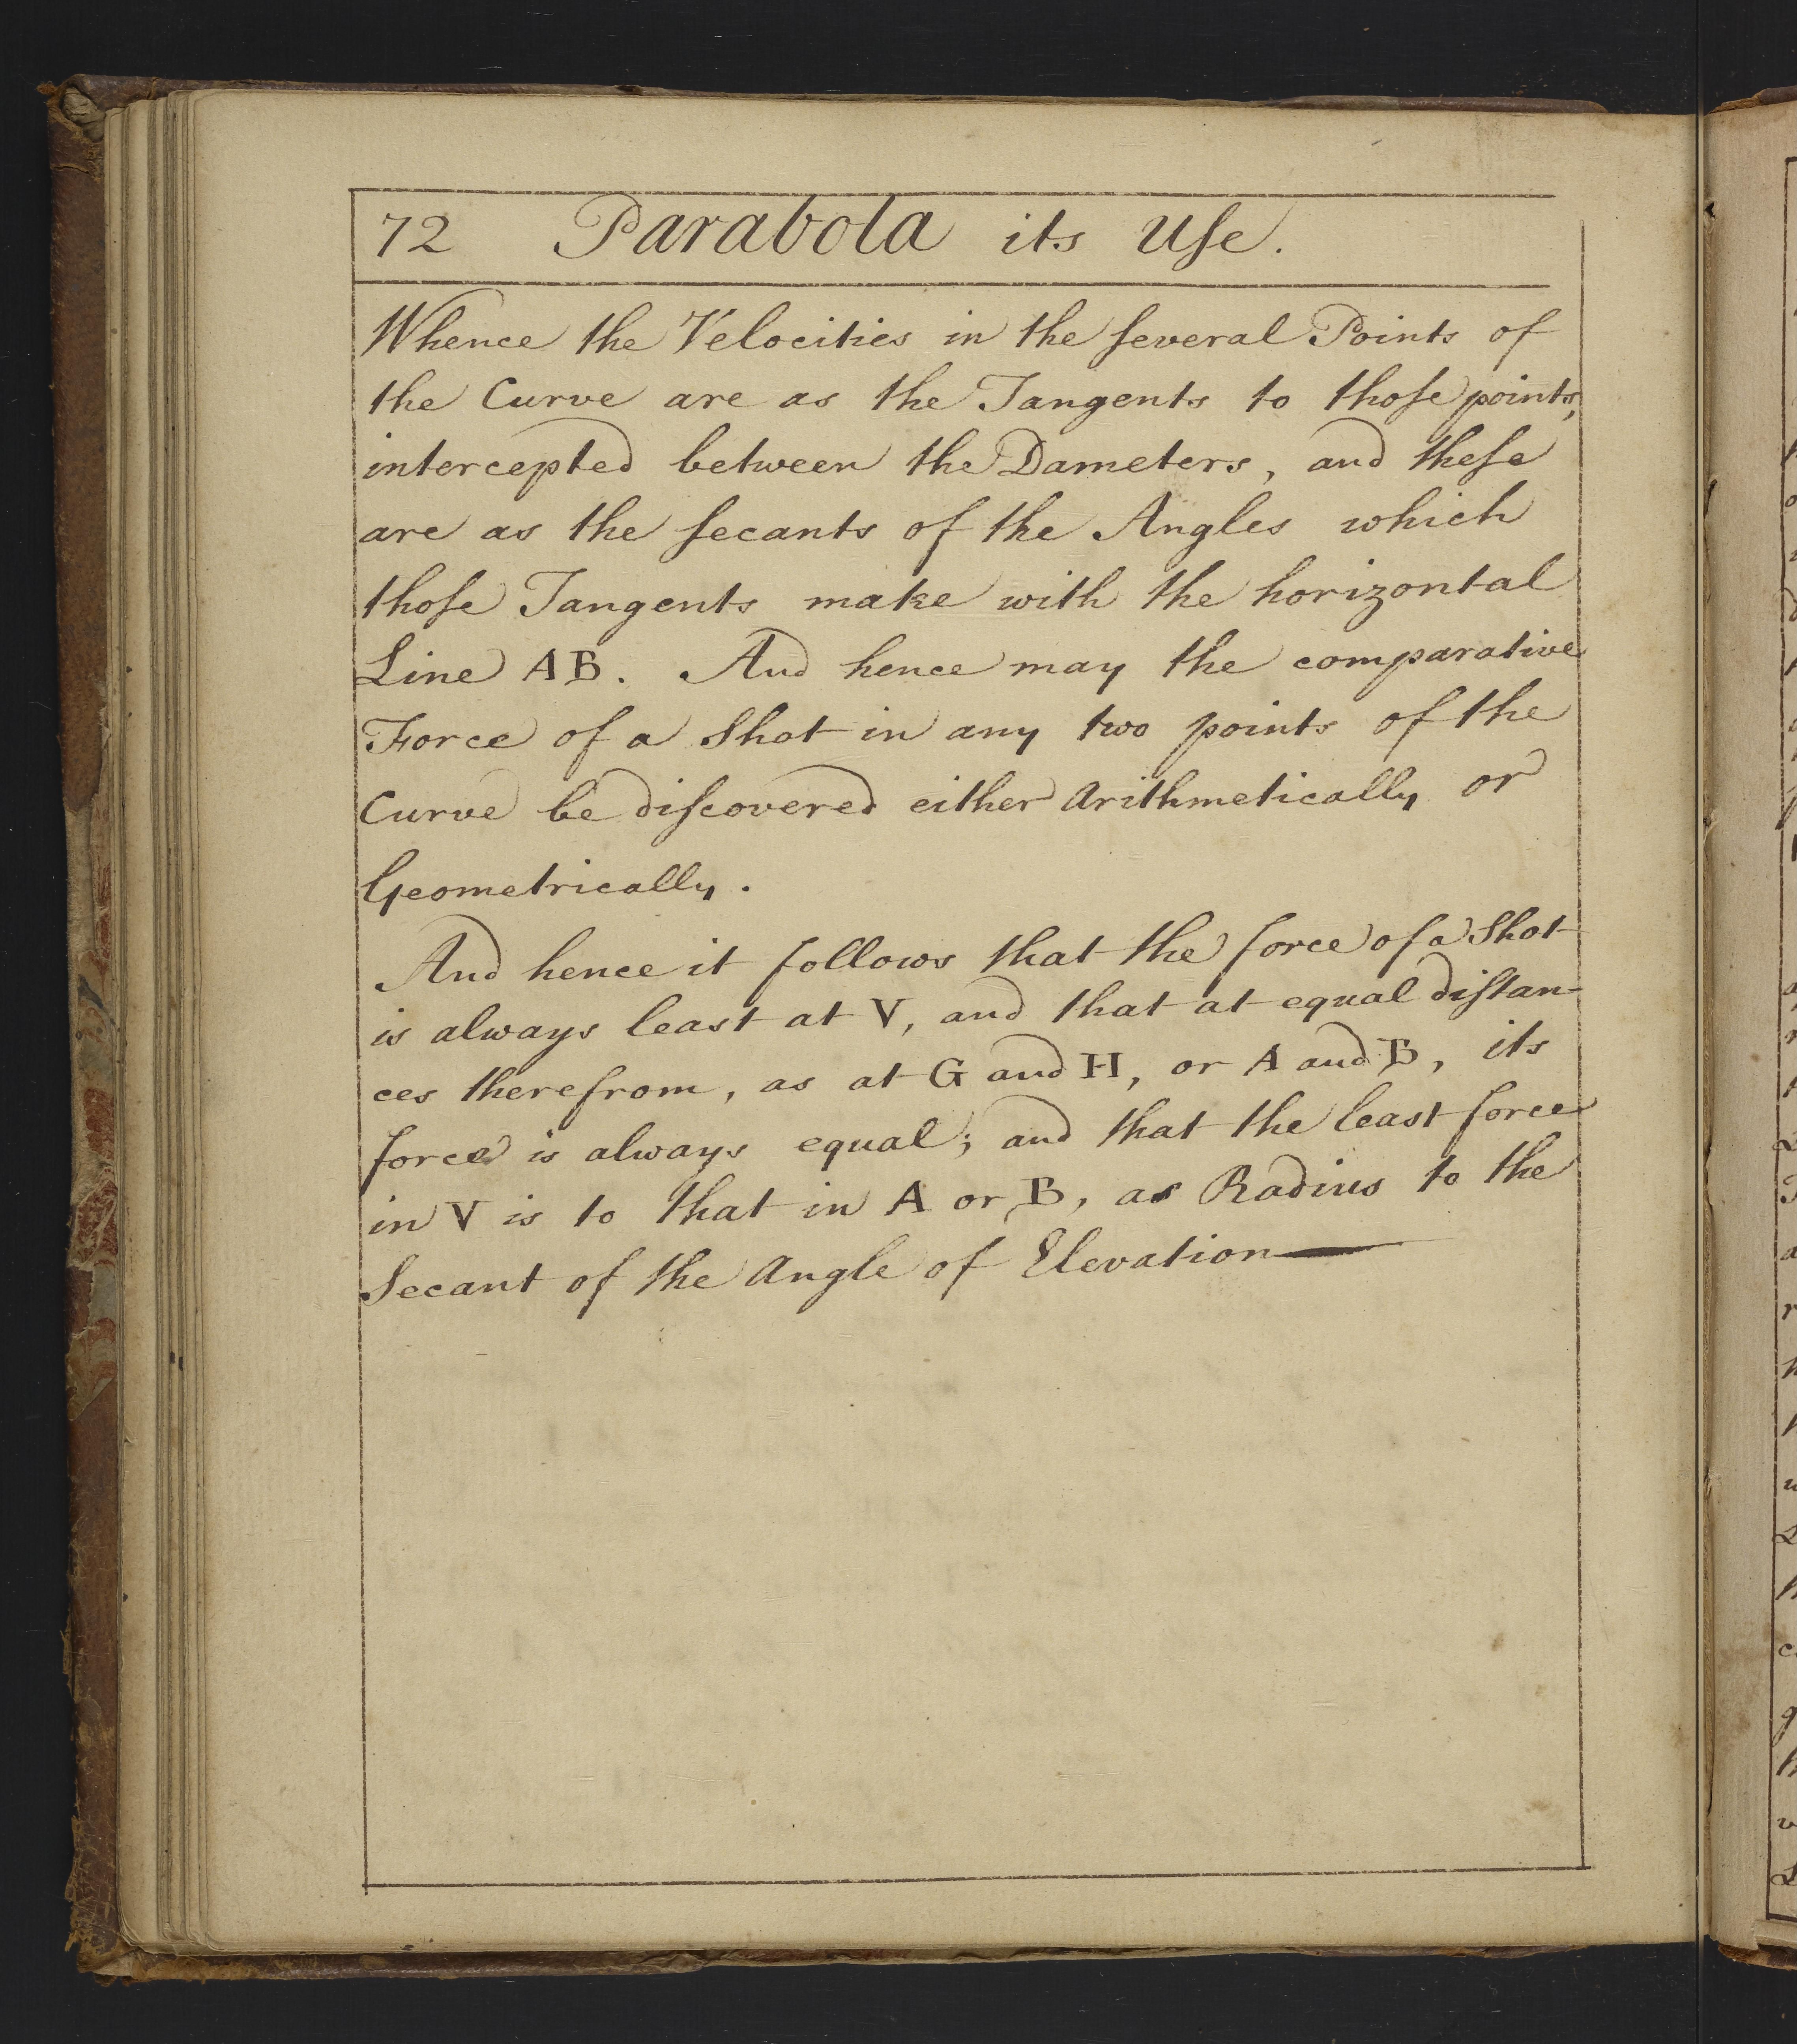 72 Parabola its Uſe.
Whence the Velocities in the ſeveral Points of
the Curve are as the Tangents to thoſe points,
intercepted between the Dameters, and theſe
are as the ſecants of the Angles which
thoſe Tangents make with the horizontal
Line AB. And hence may the comparative
Force of a Shot in any two points of the
Curve be diſcovered either Arithmetically or
Geometrically.
And hence it follows that the force of a Shot
is always least at V, and that at equal diſtan-
ces therefrom, as at G and H, or A and B, its
force is always equal; and that the least force
in V is to that in A or B, as Radius to the
Secant of the Angle of Elevation